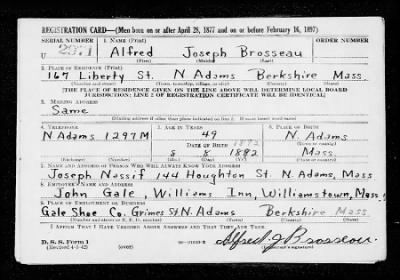 REGISTRATION CARD—(Men born on or after April 28, 1877 and on or before February 16, 1897)
SERIAL NUMBER 1. NAME (Print) ORDER NUMBER
U Alfred Joseph Brosseau
(First) (Middle) (Last)
2. PLACE OF RESIDENCE (Print)
167 Liberty St. N Adams Berkshire Mass.
(Number and street) (Town, township, village, or city) (County) (State)
[THE PLACE OF RESIDENCE GIVEN ON THE LINE ABOVE WILL DETERMINE LOCAL BOARD
JURISDICTION; LINE 2 OF REGISTRATION CERTIFICATE WILL BE IDENTICAL]
3. MAILING ADDRESS
Same
[Mailing address if other than place indicated on line 2. If same insert word same]
4. TELEPHONE 5. AGE IN YEARS 6. PLACE OF BIRTH
N Adams 1297M 49 N. Adams
DATE OF BIRTH 1892 (Town or county)
8 8 1892 Mass.
(Exchange) (Number) (Mo.) (Day) (Yr.) (State or country)
7. NAME AND ADDRESS OF PERSON WHO WILL ALWAYS KNOW YOUR ADDRESS
Joseph Nassif 144 Houghton St. N. Adams, Mass
8. EMPLOYER'S NAME AND ADDRESS
John Gale, Williams Inn, Williamstown, Mass.
9. PLACE OF EMPLOYMENT OR BUSINESS
Gale Shoe Co. Grimes St. N. Adams Berkshire Mass
(Number and street or R. F. D. number) (Town) (County) (State)
I AFFIRM THAT I HAVE VERIFIED ABOVE ANSWERS AND THAT THEY ARE TRUE.
D. S. S. Form 1
(Revised 4-1-42) (over) Alfred J Brosseau
(Registrant's signature)